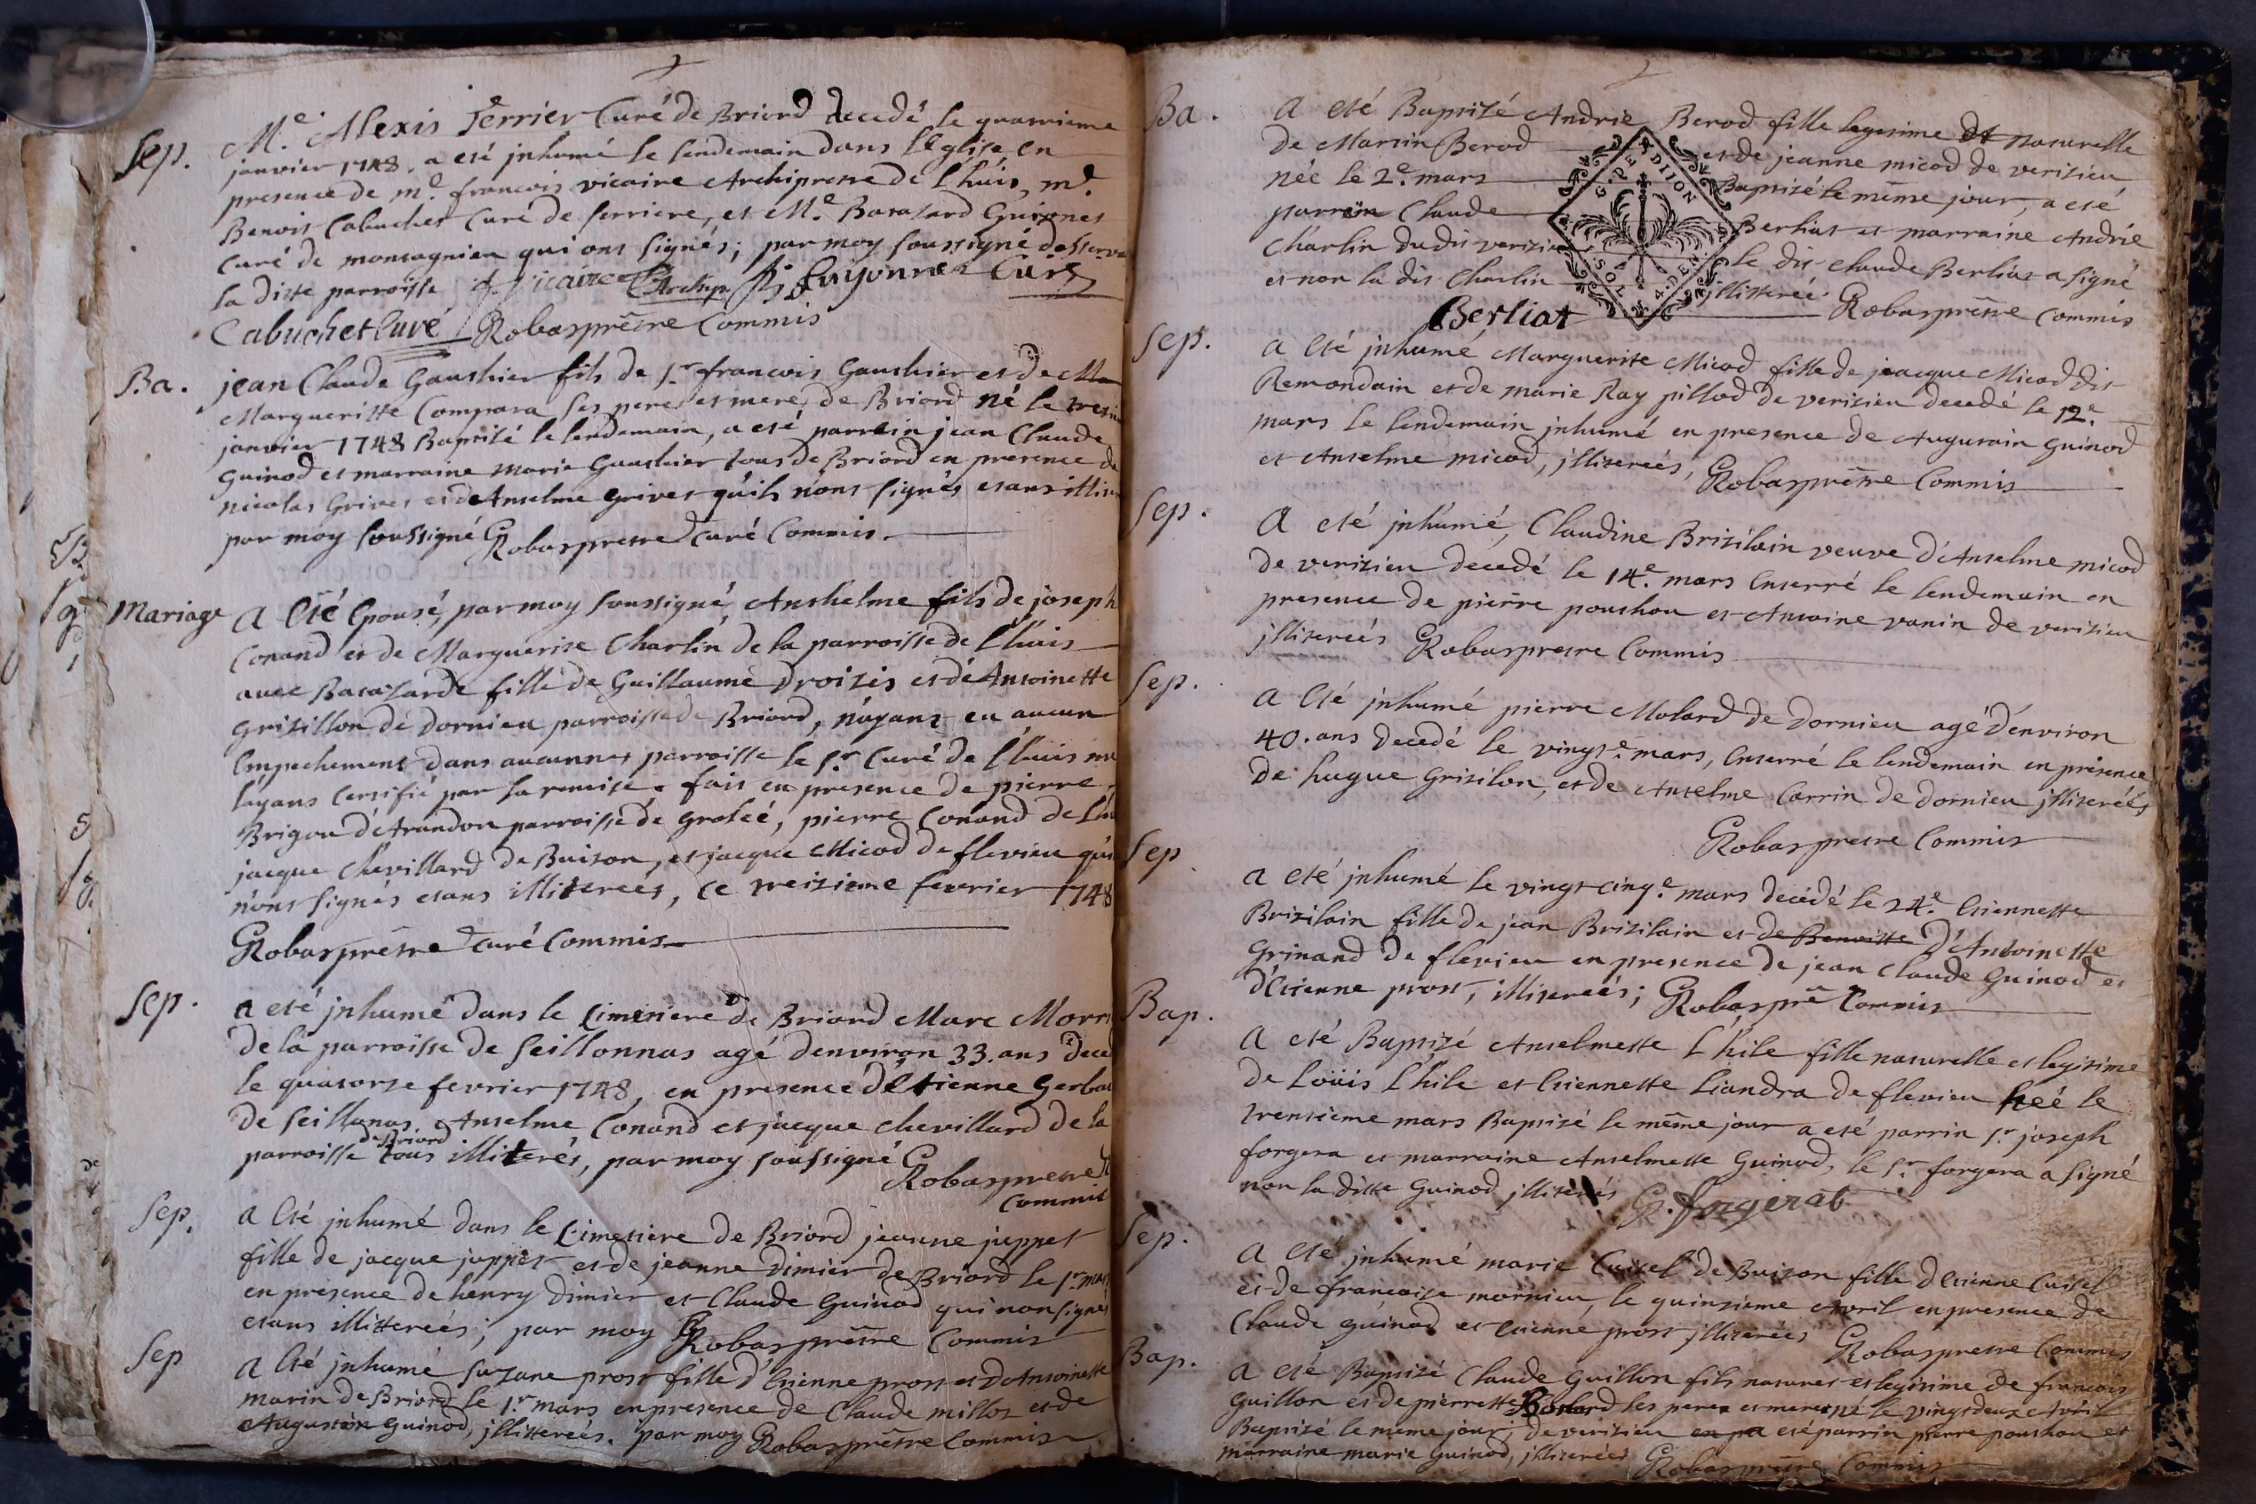 Sep. M.e Alexis Ferrier Curé de Briord decedé le quatrieme
janvier 1748. a eté jnhumé le lendemain dans l'Eglise en
presence de m.e francois vicaire Archiprestre de Lhuis, m.e
Benoit Cabuchet Curé de serriere, et M.e Batazard Guignet
Curé de montagnieu qui ont signés; par moy soussigné
la ditte parroisse
Cabuchet Curé Robasprêtre Commis
Ba. jean Claude Gauthier fils de s.r francois Gauthier et de
Margueritte Compara ses pere et mere, de Briord né le
janvier 1748 Baptisé le lendemain, a eté parrein jean Claude
Guinod et marraine marie Gauthier tous de Briord en presence de
nicolas Grivet et de Anselme Grivet qu'ils n'ont signés etans
par moy soussigné Robasprestre Curé Commis.
Mariage a Eté Epousé, par moy soussigné, Anthelme fils de joseph
Conand et de Marguerite Charlin de la parroisse de Lhuis
avec Batazarde fille de Guillaume Droizis et de Antoinette
Grisillon de Dornieu parroisse de Briord, n'ayant eu aucun
Empechement dans aucunnes parroisse le s.r Curé de Lhuis
layans Certifié par la remise. fait en presence de pierre
Brigou d'Arandon parroisse de Groleé, pierre Conand de
jacque Chevillard de Buison, et jacque Micod de flevieu
n'ont signés etans illitereés, Ce treizieme fevrier 1748
Robasprêtre Curé Commis
Sep. a eté jnhumé dans le Cimetiere de Briord Marc
de la parroisse de Seillonnas agé denviron 33. ans
le quatorze fevrier 1748, en presence d'Etienne
de Seillonas, Anselme Conand et jacque Chevillard de la
parroisse de Briord tous illiterés, par moy soussigné
Robasprestre
Commis
Sep. a Eté jnhumé dans le Cimetiere de Briord jeanne juppet
fille de jacque juppet et de jeanne Dimier de Briord le 1.r
en presence de henry Dimier et Claude Guinod qui n'ont signés
etans illittereés; par moy Robasprêtre Commis
Sep a Eté jnhumé Suzane prost fille d'Etienne prost et d'Antoinette
marin de Briord le 1.r mars en presence de Claude millot et de
Augustin Guinod, jllittereés. par moy Robasprêtre Commis
Ba. a eté Baptisé Andrie Berod fille legitime et naturelle
de Martin Berod et de jeanne micod de verizieu
née le 2.e mars Baptisé le même jour, a eté
parrein Claude Berliat et marraine Andrie
Charlin du dit verizieu le dit Claude Berliat a signé
et non la dit Charlin jllitereé. Robasprêtre Commis
Berliat
G. PERD. DIJON
SOL 4. DEN.
Sep. a Eté jnhumé Marguerite Micod fille de jeacque Micod dit
Remondain et de marie Ray pillod de verizieu decedé le 12.e
mars le lendemain jnhumé en presence de Augustin Guinod
et Anselme micod, jllitereés, Robasprêtre Commis
Sep. a Eté jnhumé, Claudine Brizilain veuve d'Anselme micod
de verizieu decedé le 14.e mars Enterré le lendemain en
presence de pierre pouthon et Antoine vanin de verizieu
jllitereés Robasprestre Commis
Sep. a Eté jnhumé pierre Molard de Dornieu agé d'environ
40. ans decedé le vingt.e mars, Enterré le lendemain en présence
de hugue Grisilon, et de Anselme Carrin de Dornieu jlliterées
Robasprestre Commis
Sep a eté jnhumé le vingt cinq.e mars decédé le 24.e Etiennette
Brizilain fille de jean Brizilain et de Benoitte d'Antoinette
Grinand de flevieu en presence de jean Claude Guinod et
d'Etienne prost, illitereés; Robasprê Commis
Bap. a eté Baptisé Anselmette L'hile fille naturelle et legitime
de Loüis L'hile et Etiennette Liandra de flevieu neé le
trentieme mars Baptisé le même jour a eté parrin s.r joseph
forgera et marraine Anselmette Guinod, le s.r forgera a signé
non la ditte Guinod jllitereés
G. forgerat
Sep. a Eté jnhumé marie Cuisel de Buison fille d'Etienne Cuisel
et de francoise mornieu, le quinzieme Avril en presence de
Claude Guinod et Etienne prost jllitereés Robasprestre Commis
Bap. a eté Baptisé Claude Guillon fils naturel et legitime de francois
Guillon et de pierrette les peres et meres né le vingt deux Avril
Baptisé le meme jour, de verizieu eté parrin pierre pouthon et
marraine marie Guinod, jllitereés Robasprêtre Commis